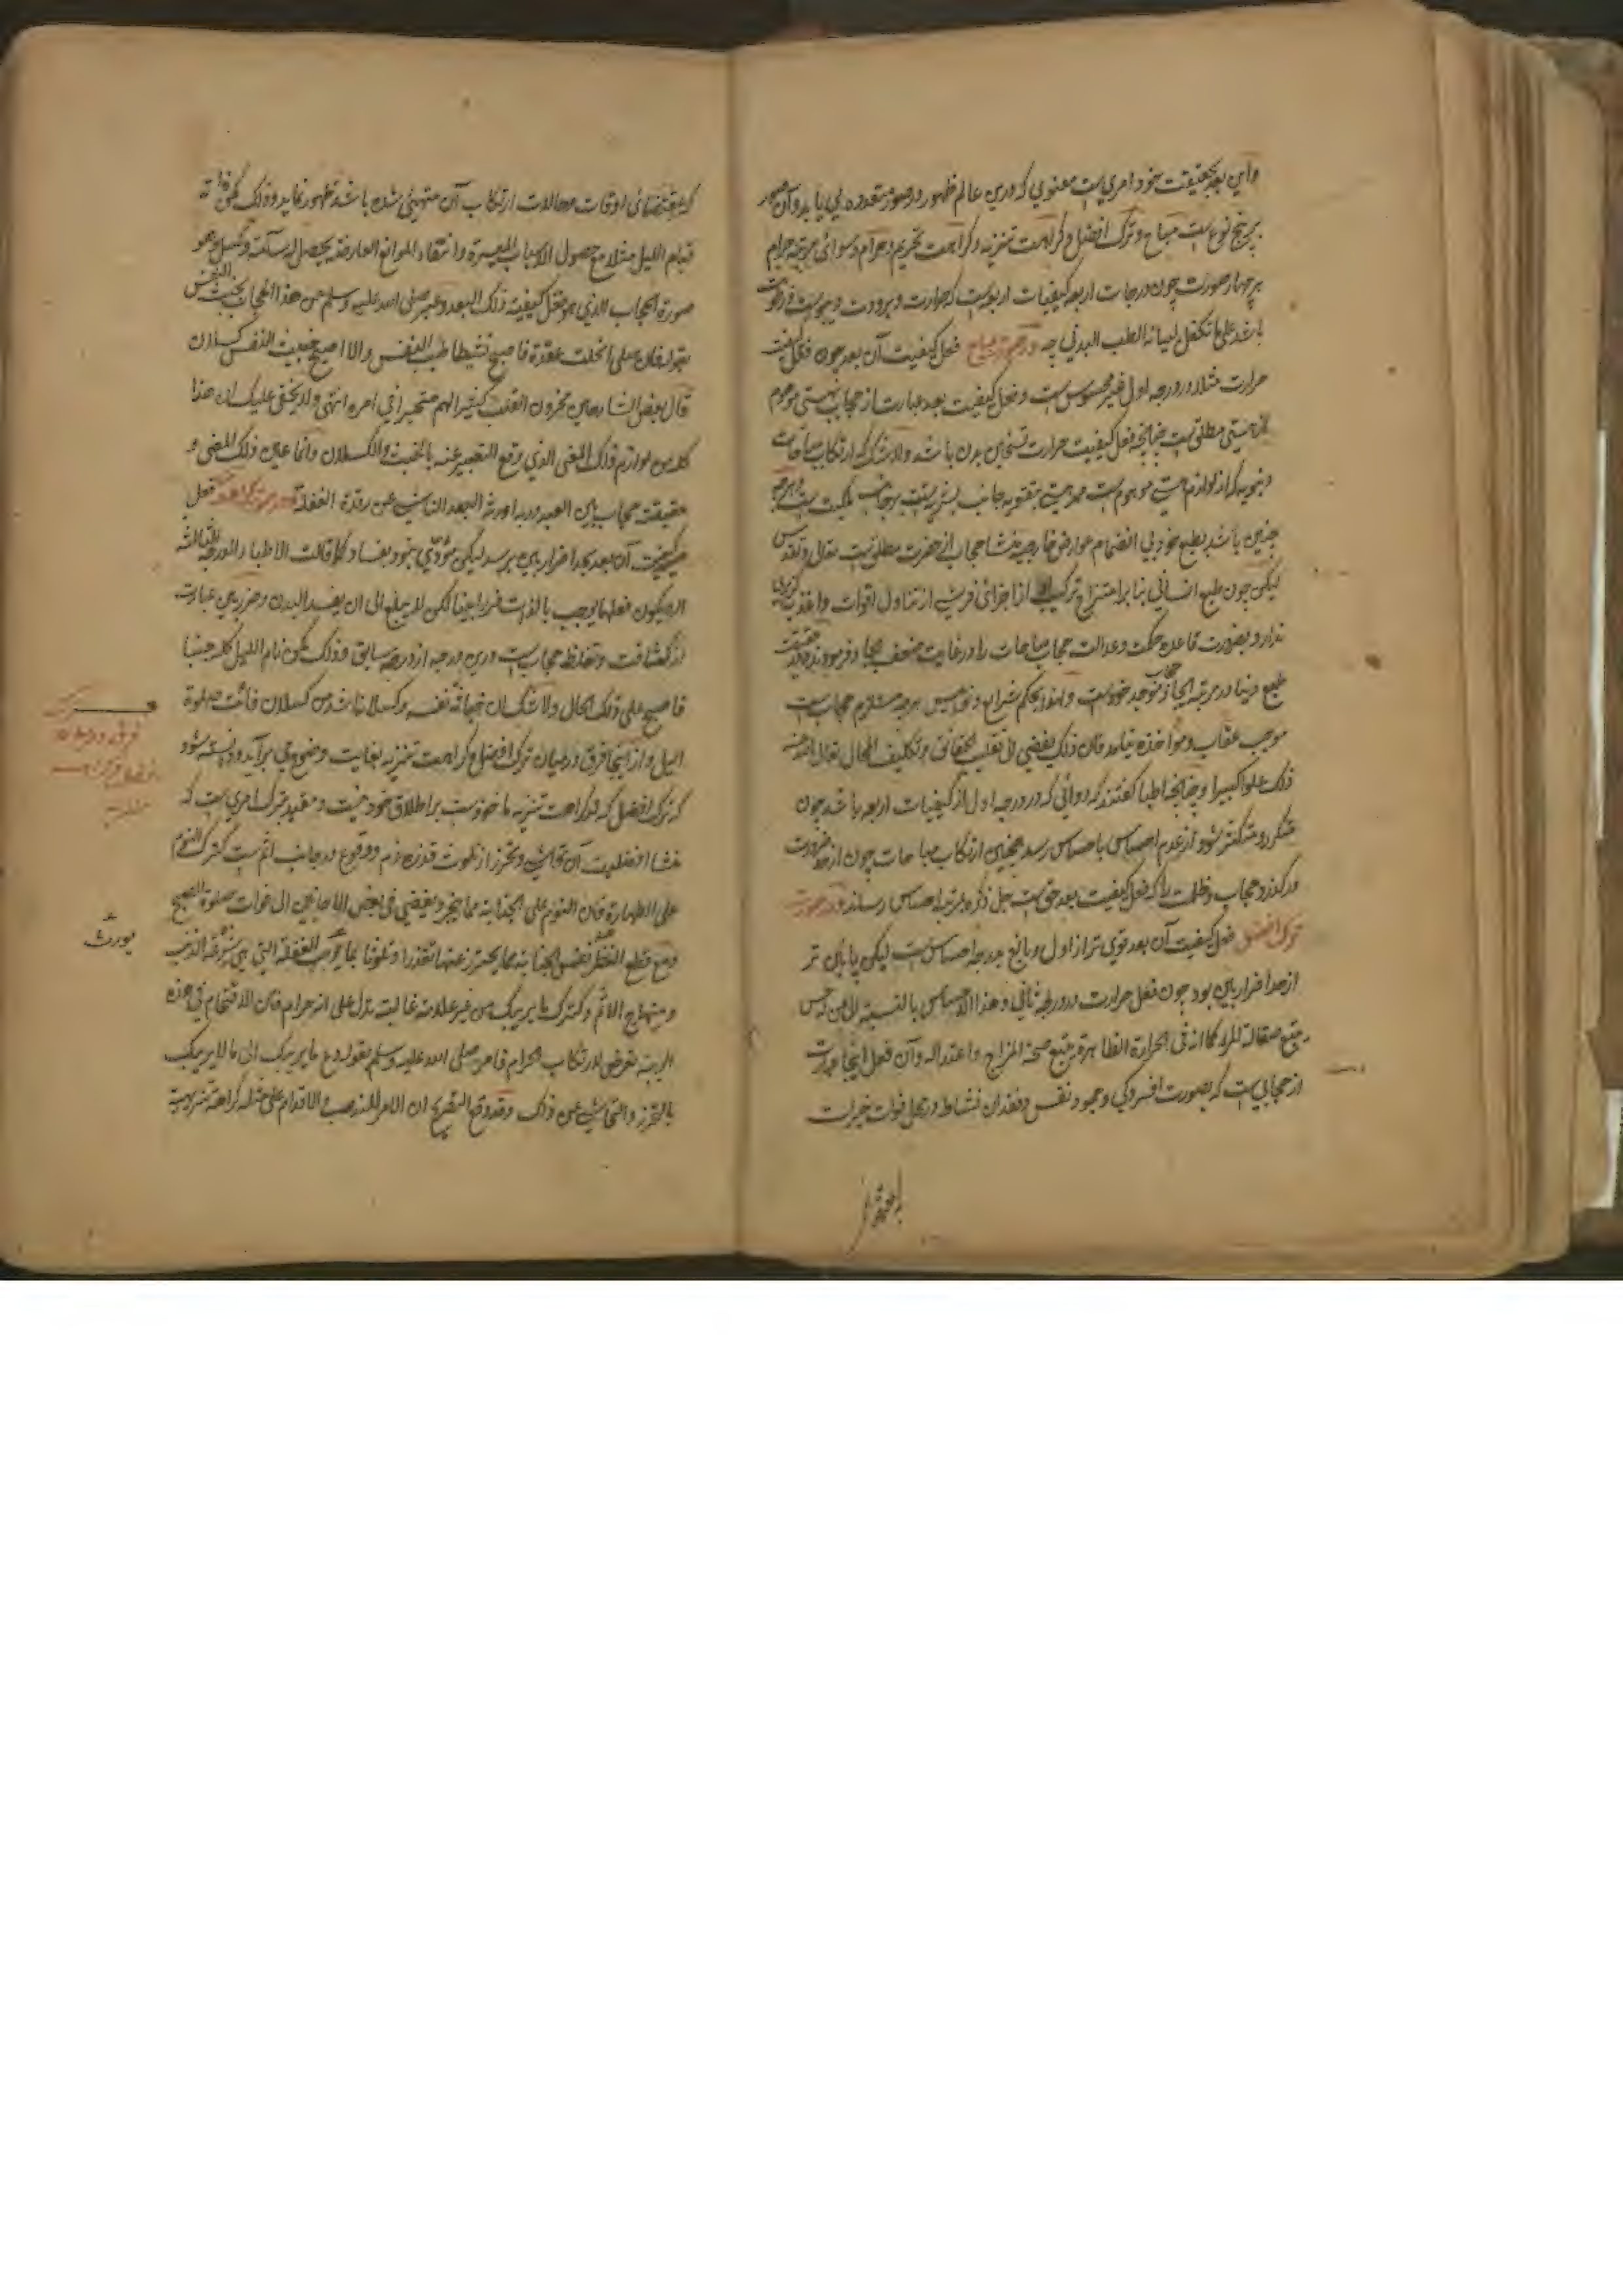 واین بعد بحقیقت خود امریست معنوی که درین عالم ظهور در صور متعدده می یابد و آن صور
بر پنج نوعست مباح و ترک افضل و کراهت تنزیه و کراهت تحریم و حرام و سوای مرتبه حرام
هر چهار صورت چون درجات اربعه کیفیات اربعست که حرارت و برودت و یبوست و رطوبت
باشد علی ما تکفل لبیانه الطب البدنی چه در صورت مباح فعل کیفیت آن بعد چون فعل کیفیت
حرارت مثلا در درجه اول غیر محسوس است و فعل کیفیت بعد عبارت از حجاب هستی موهوم
از هستی مطلق است چنانچه فعل کیفیت حرارت تسخین بدن باشد ولا شک که ارتکاب مباحات
دنیویه که از لوازم هستی موهوم است ممد هستی بتقویه جانب بشریت بر جانب ملکیت است و هر چه
چنین باشد بطبع خود بی انضمام عوارض خارجیه منشا حجاب از حضرت مطلق است تعالی و تقدس
لیکن چون طبع انسانی بنا بر امتزاج ترکیب از اجزای فرشی از تناول اقوات و اغذیه گزیر
ندارد بضرورت قاعده حکمت و عدالت حجاب مباحات را در غایت ضعف ایجاد فرمودند
طبع دنیا در مرتبه ایجاد موجد خودست و لهذا بحکم شرایع و نوامیس هر چه مستلزم حجاب است
موجب عقاب و مواخذه نیامد فان ذلک یفضی الی تقلیب الحقائق و تکلیف المحال تعالی الله عن
ذلک علوا کبیرا و چنانچه اطبا گفتند که دوائی که در درجه اول از کیفیات اربعه باشد چون
متکرر و متکثر شود از عدم احساس باحساس رسد همچنین ارتکاب مباحات چون از حد ضرورت
در گذرد حجاب و ظلمت را که فعل کیفیت بعد حق است جل ذکره بمرتبه احساس رساند و در صورت
ترک افضل فعل کیفیت آن بعد قوی تر از اول و بالغ بدرجه احساس است لیکن پایان تر
از حد اضرار بین بود چون فعل حرارت در درجه ثانی و هذا الاحساس بالنسبة الی من له حس
یتبع صقالة المرآة کما انه فی الحرارة الظاهرة یتبع صحة المزاج و اعتداله و آن فعل اینجا عبارت
از حجابی است که بصورت افسردگی و جمود نفس و فقدان نشاط در محل فوات خیرات
بمقتضای
که بمقتضای اوقات و حالات ارتکاب آن متهیئ شده باشد ظهور نماید و ذلک کمن فاته
قیام اللیل مثلا مع حصول الاسباب المیسرة و انتفاء الموانع العارضة یحصل له سآمة و کسل و هو
صورة الحجاب الذی هو فعل کیفیة ذلک البعد و عبر صلی الله علیه وسلم من هذا الحجاب بخبث النفس
بقوله فان صلی انحلت عقدة فاصبح نشیطا طیب النفس و الا اصبح خبیث النفس کسلان
قال بعض الشارحین محزون القلب کثیر الهم متحیرا فی امره انتهی ولا یخفی علیک ان هذا
کله من لوازم ذلک المعنی الذی وقع التعبیر عنه بالخبث و الکسلان و انما عین ذلک المعنی و
حقیقته حجاب بین العبد و ربه اورثه البعد الناشئ عن رقدة الغفلة و در صورت کراهت فعل
کیفیت آن بعد بحد اضرار بین برسد لیکن مؤدی نبود بفساد کما قالت الاطباء الدرجة الثالثة
ان یکون فعلها یوجب بالذات ضررا بینا لکن لا یبلغ الی ان یفسد البدن و ضرر بین عبارت
از کثافت و تغلظ حجاب است درین درجه از درجه سابق و ذلک کمن نام اللیل کله جنبا
فاصبح علی ذلک الحال ولا شک ان خباثة نفسه و کسلانه اشد من کسلان فائت صلوة
اللیل و از اینجا فرق در میان ترک افضل و کراهت تنزیه بغایت وضوح می برآید و دانسته شود
که ترک افضل که در کراهت تنزیه ماخوذست بر اطلاق خود نیست و مقید بترک امری است که
منشا افضلیت آن تحاشی و تحرز از تلوث قذرت و وقوع در جانب اثم است کترک النوم
علی الطهارة فان النوم علی الجنابة مما ینجر و یفضی فی بعض الاحایین الی فوات صلوة الصبح
و مع قطع النظر نفس الجنابة مما یحترز عنها تقذرا و تلوثا بما یوجب الغفلة التی هی شرعة الذنب
و منهاج الاثم و کترک ما یریبک من غیر علامة غالبة تدل علی انه حرام فان الاقتحام فی هذه
الریبة تعرض لارتکاب الحرام فامر صلی الله علیه وسلم بقوله دع ما یریبک الی ما لا یریبک
بالتحرز و التحاشی عن ذلک و قد وقع التصریح ان الامر للندب و الاقدام علی مثله کراهة تنزیهیة
فرق در میان
ترک افضل و کراهت
تنزیه
یورث